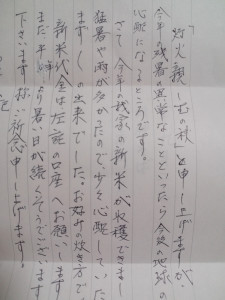 「灯火親しむの秋」と申し上げますが
今年の残暑の異常なことといったら今後の地球の
心配になるところです。
さて、今年の我家の新米が収穫できま
猛暑や雨が多かったので少々心配してい
ますしの出来でした。お好みの炊き方で
新米代金は左記の口座へお願いします
まだ平時より暑い日が続くそうでございます
下さいます様ご祈念申し上げます。